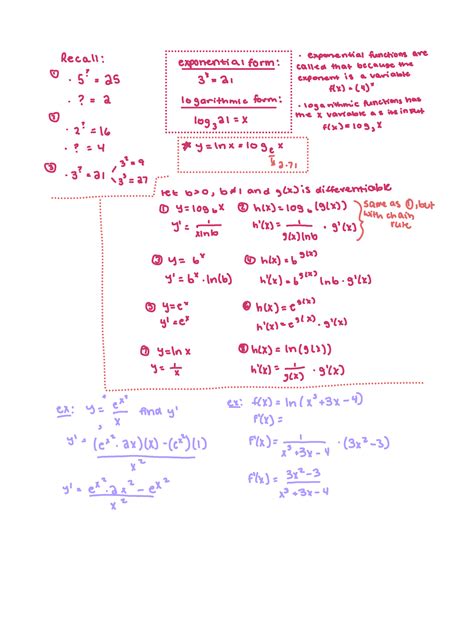 Recall:
① · 5^? = 25
· ? = 2
② · 2^? = 16
· ? = 4
③ · 3^? = 21
3^2 = 9
3^3 = 27
exponential form:
3^x = 21
logarithmic form:
log_3 21 = x
* y = ln x = log_e x
2.71
· exponential functions are
called that because the
exponent is a variable
f(x) = (4)^x
· logarithmic functions has
the x variable as its input
f(x) = log_3 x
let b>0, b≠1 and g(x) is differentiable
① y = log_b x
y' = 1/(x ln b)
② h(x) = log_b (g(x))
h'(x) = 1/(g(x) ln b) · g'(x)
same as ①, but
with chain
rule
③ y = b^x
y' = b^x · ln(b)
④ h(x) = b^g(x)
h'(x) = b^g(x) ln b · g'(x)
⑤ y = e^x
y' = e^x
⑥ h(x) = e^g(x)
h'(x) = e^g(x) · g'(x)
⑦ y = ln x
y = 1/x
⑧ h(x) = ln(g(x))
h'(x) = 1/g(x) · g'(x)
ex: y = e^x²/x find y'
y' = ((e^x² · 2x)(x) - (e^x²)(1))/x²
y' = (e^x² · 2x² - e^x²)/x²
ex: f(x) = ln(x³+3x-4)
f'(x) =
f'(x) = 1/(x³+3x-4) · (3x²-3)
f'(x) = (3x²-3)/(x³+3x-4)